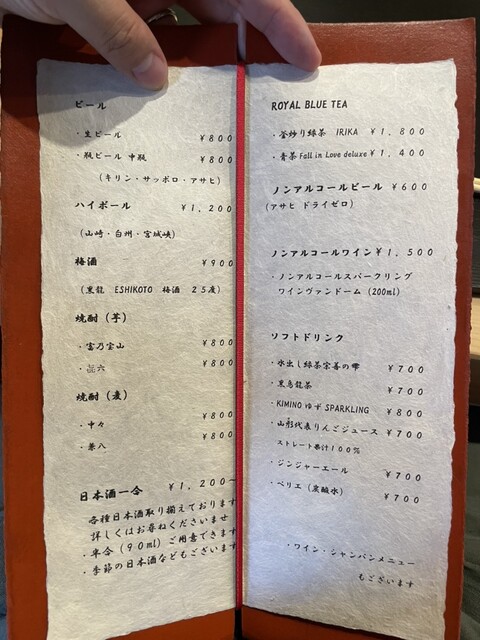 ビール
・生ビール ¥800
・瓶ビール 中瓶 ¥800
(キリン・サッポロ・アサヒ)
ハイボール ¥1,200
(山崎・白州・宮城峡)
梅酒 ¥900
(黒龍 ESHIKOTO 梅酒 25度)
焼酎(芋)
・富乃宝山 ¥800
・㐂六 ¥800
焼酎(麦)
・中々 ¥800
・兼八 ¥800
日本酒一合 ¥1,200~
各種日本酒取り揃えております
詳しくはお尋ねくださいませ
・半合(90ml)ご用意できます
・季節の日本酒などもございます
ROYAL BLUE TEA
・釜炒り緑茶 IRIKA ¥1,800
・青茶 Fall in Love deluxe ¥1,400
ノンアルコールビール ¥600
(アサヒ ドライゼロ)
ノンアルコールワイン ¥1,500
・ノンアルコールスパークリング
ワインヴァンドーム (200ml)
ソフトドリンク
・水出し緑茶宗善の雫 ¥700
・黒烏龍茶 ¥700
・KIMINO ゆず SPARKLING ¥800
・山形代表りんごジュース ¥700
ストレート果汁100%
・ジンジャーエール ¥700
・ペリエ(炭酸水) ¥700
・ワイン・シャンパンメニュー
もございます